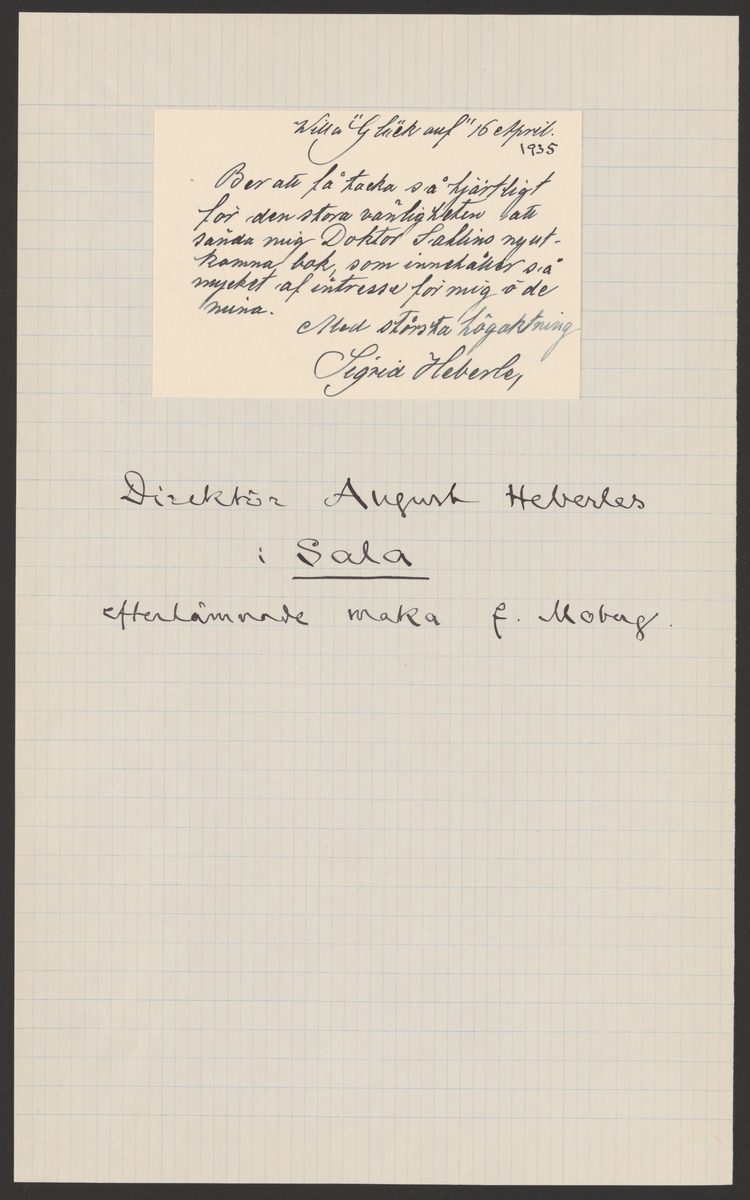 Willa "Glück auf" 16 April.
1935
Ber att få tacka så hjärtligt
för den stora vänligheten att
sända mig Doktor Sahlins nyut-
komna bok, som innehåller så
mycket af intresse för mig o de
mina.
Med största högaktning
Sigrid Heberle,
Direktör August Heberles
i Sala
efterlämnade maka f. Moberg.